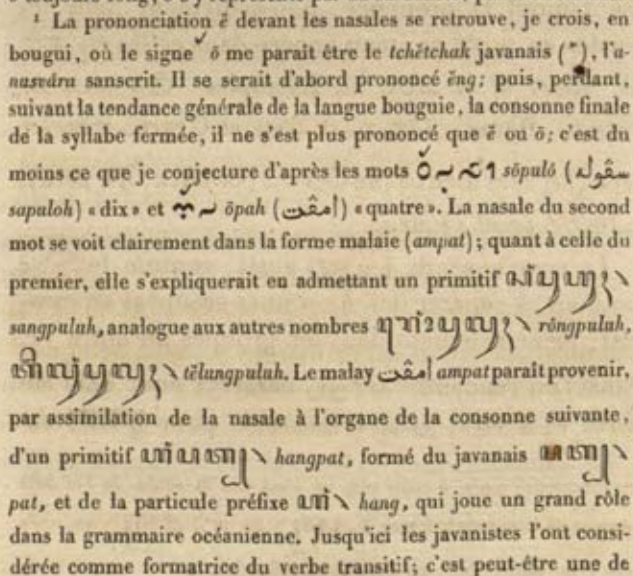 ¹ La prononciation ĕ devant les nasales se retrouve, je crois, en
bougui, où le signe ˇ ŏ me paraît être le tchĕtchak javanais (), l'a-
nusvâra sanscrit. Il se serait d'abord prononcé ĕng; puis, perdant,
suivant la tendance générale de la langue bouguie, la consonne finale
de la syllabe fermée, il ne s'est plus prononcé que ĕ ou ŏ; c'est du
moins ce que je conjecture d'après les mots sŏpuló (سڤوله
sapaloh) « dix » et ŏpah (امڤت) « quatre ». La nasale du second
mot se voit clairement dans la forme malaie (ampat); quant à celle du
premier, elle s'expliquerait en admettant un primitif
sangpuluh, analogue aux autres nombres rôngpuluh,
tĕlungpuluh. Le malay امڤت ampat paraît provenir,
par assimilation de la nasale à l'organe de la consonne suivante,
d'un primitif hangpat, formé du javanais
pat, et de la particule préfixe hang, qui joue un grand rôle
dans la grammaire océanienne. Jusqu'ici les javanistes l'ont consi-
dérée comme formatrice du verbe transitif; c'est peut-être une de